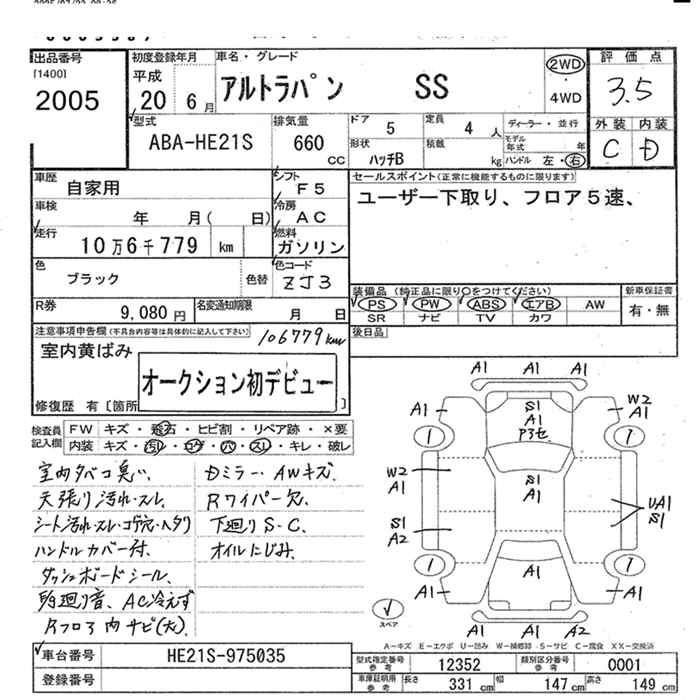 出品番号 初度登録年月 車名・グレード 評価点
[1400] 平成 2WD
2005 20 6月 アルトラパン SS 4WD 3.5
型式 排気量 ドア 5 定員 4人 ディーラー・並行 外装 内装
ABA-HE21S 660 CC 形状 ハッチB 積載 kg モデル年式 年 ハンドル 左・右 C D
車歴 自家用 シフト F5 セールスポイント(正常に機能するものに限ります)
車検 年 月( 日) 冷房 AC ユーザー下取り、フロア5速、
走行 10万6千779 km 燃料 ガソリン
色 ブラック 色替 色コード ZJ3
装備品(純正品に限り○をつけてください) 新車保証書
R券 9,080円 名変通知期限 月 日 PS PW ABS エアB AW 有・無
SR ナビ TV カワ
注意事項申告欄(不具合内容等は具体的に記入して下さい) 106779km 後日品
室内黄ばみ
オークション初デビュー
修復歴 有[箇所 ]
検査員記入欄 FW キズ・飛石・ヒビ割・リペア跡・×要
内装 キズ・汚レ・コゲ・穴・スレ・キレ・破レ
室内タバコ臭い、 Dミラー・AWキズ
天張り汚れ・スレ Rワイパー欠
シート汚れ・スレ・コゲ穴・ヘタリ 下廻りS・C、
ハンドルカバー付、 オイルにじみ、
ダッシュボードシール、
AC冷えず
Rフロア内サビ(大)
A1 A1 A1
A1 S1 A1 W2 A1
1 1
W2 A1 S1 A1 UA1 S1
S1 A2
1 A1 1
A1 A1
スペア A1 A1 A2
A-キズ E-エクボ U-凹み W-補修跡 S-サビ C-腐食 XX-交換済
車台番号 HE21S-975035 型式指定番号 参考 12352 類別区分番号 参考 0001
登録番号 車庫証明用 参考 長さ 331 cm 幅 147 cm 高さ 149 cm